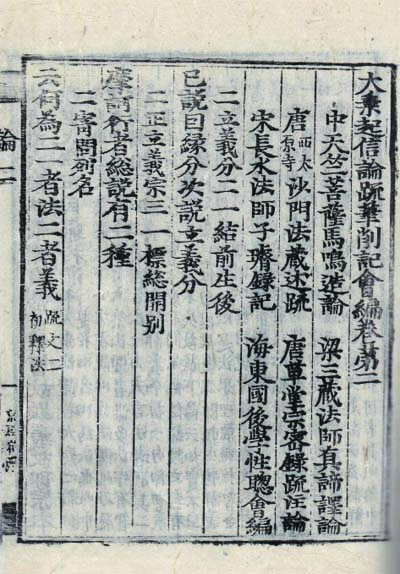 大乗起信論疏筆削記會編卷第二
中天竺菩薩馬鳴造論 梁三藏法師真諦譯論
唐西太原寺沙門法藏述疏 唐草堂宗密錄疏注論
宋長水法師子璿錄記 海東國後學性聰會編
二立義分二一結前生後
已說因緣分次說立義分
二正立義宗三一標總開別
摩訶衍者總說有二種
二寄問列名
云何為二一者法二者義疏文二初釋法
論二